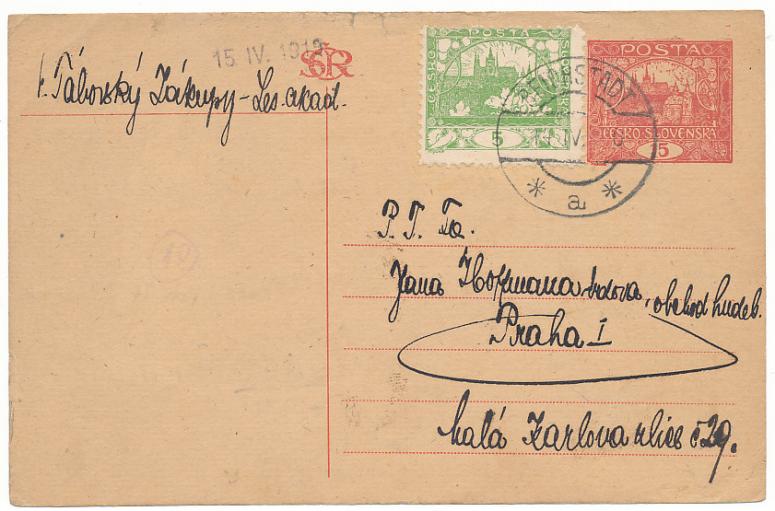 15. IV. 1919
ČSR
V. Táborský Zákupy - Les. akad.
POSTA
ČESKO SLOVENSKÁ
5
POSTA
ČESKO-SLOVENSKÁ
15
REICHSTADT
14 IV.
* a *
P. T. Fa.
Jana Hoffmana vdova, obchod hudeb.
Praha I
Malá Karlova ulice č 29.